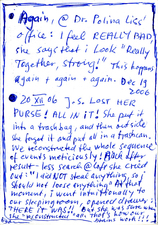 Again, @ Dr. Polina Liss'
office: I feel REALLY BAD,
she says that i look "Really
Together, strong!" This happens
again + again + again. Dec 19
2006
20 XII 06 J.S. LOST HER
PURSE! ALL IN IT! She put it
into a trashbag, and then
she forgot it and put all in a trashcan.
We reconstructed the whole sequence
of events meticulously: After
search @ cafe she cried
out: "I did NOT steal anything, so i
should not loose anything" At that
moment, I went intentionally to
our sleepingroom, opened drawer:
THERE IT WAS!! But she was sure
she "reconstructed"